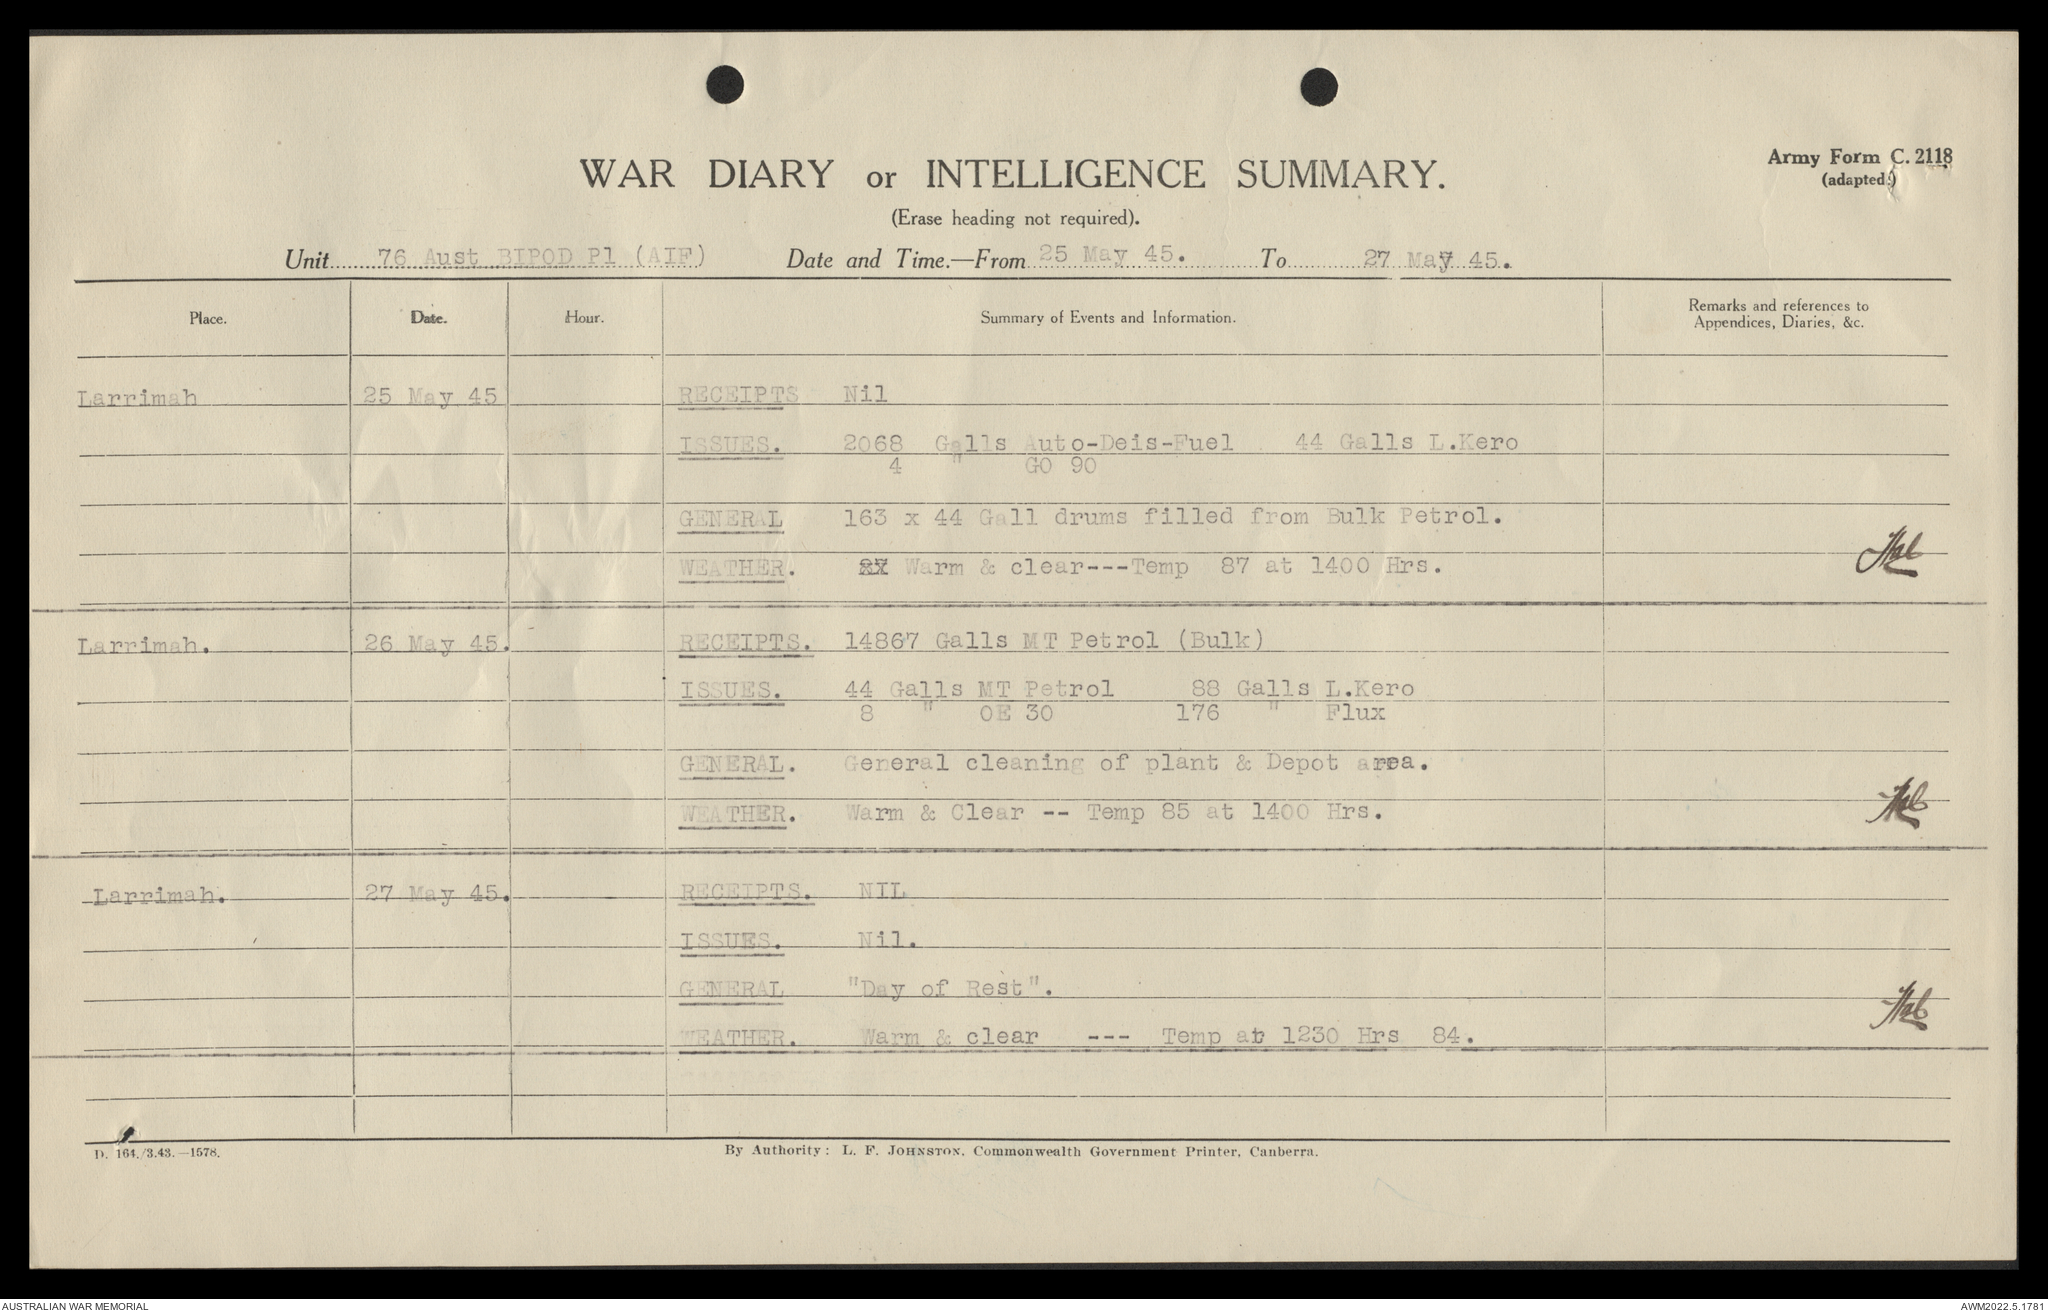 WAR DIARY or INTELLIGENCE SUMMARY.
Army Form C. 2118
(adapted.)
(Erase heading not required).
Unit 76 Aust BIPOD Pl (AIF) Date and Time.—From 25 May 45. To 27 May 45.
Place. Date. Hour. Summary of Events and Information. Remarks and references to
Appendices, Diaries, &c.
Larrimah 25 May 45 RECEIPTS Nil
ISSUES. 2068 Galls Auto-Deis-Fuel 44 Galls L.Kero
4 " GO 90
GENERAL 163 x 44 Gall drums filled from Bulk Petrol.
WEATHER. Warm & clear---Temp 87 at 1400 Hrs.
Larrimah. 26 May 45. RECEIPTS. 14867 Galls MT Petrol (Bulk)
ISSUES. 44 Galls MT Petrol 88 Galls L.Kero
8 " OE 30 176 " Flux
GENERAL. General cleaning of plant & Depot area.
WEATHER. Warm & Clear -- Temp 85 at 1400 Hrs.
Larrimah. 27 May 45. RECEIPTS. NIL
ISSUES. Nil.
GENERAL "Day of Rest".
WEATHER. Warm & clear --- Temp at 1230 Hrs 84.
D. 164./3.43.—1578. By Authority: L. F. JOHNSTON, Commonwealth Government Printer, Canberra.
AUSTRALIAN WAR MEMORIAL AWM2022.5.1781